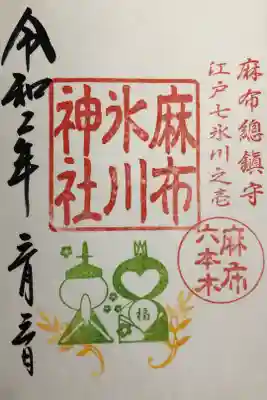 麻布總鎮守
江戸七氷川之壱
麻布
氷川
神社
麻布
六本木
福
令和二年 三月三日